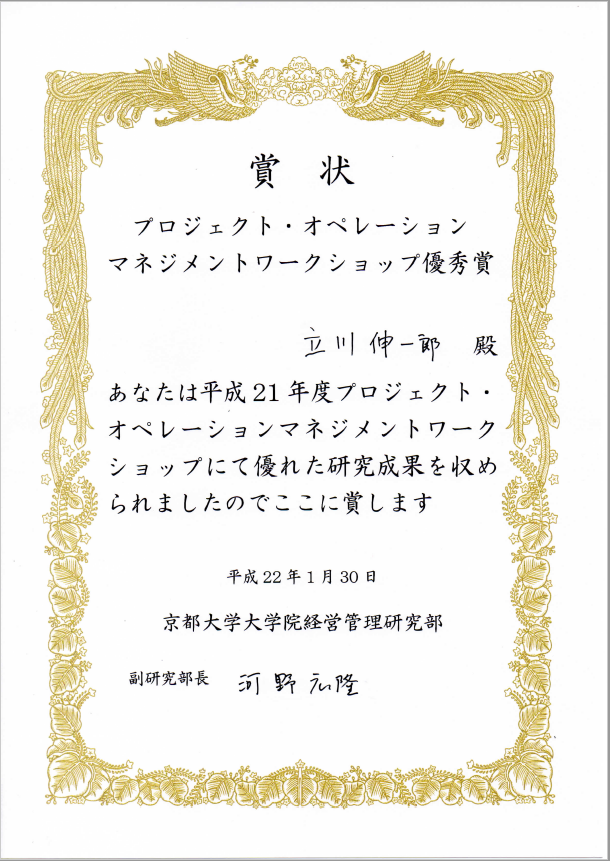 賞 状
プロジェクト・オペレーション
マネジメントワークショップ優秀賞
立川 伸一郎 殿
あなたは平成21年度プロジェクト・
オペレーションマネジメントワーク
ショップにて優れた研究成果を収め
られましたのでここに賞します
平成22年1月30日
京都大学大学院経営管理研究部
副研究部長 河野広隆